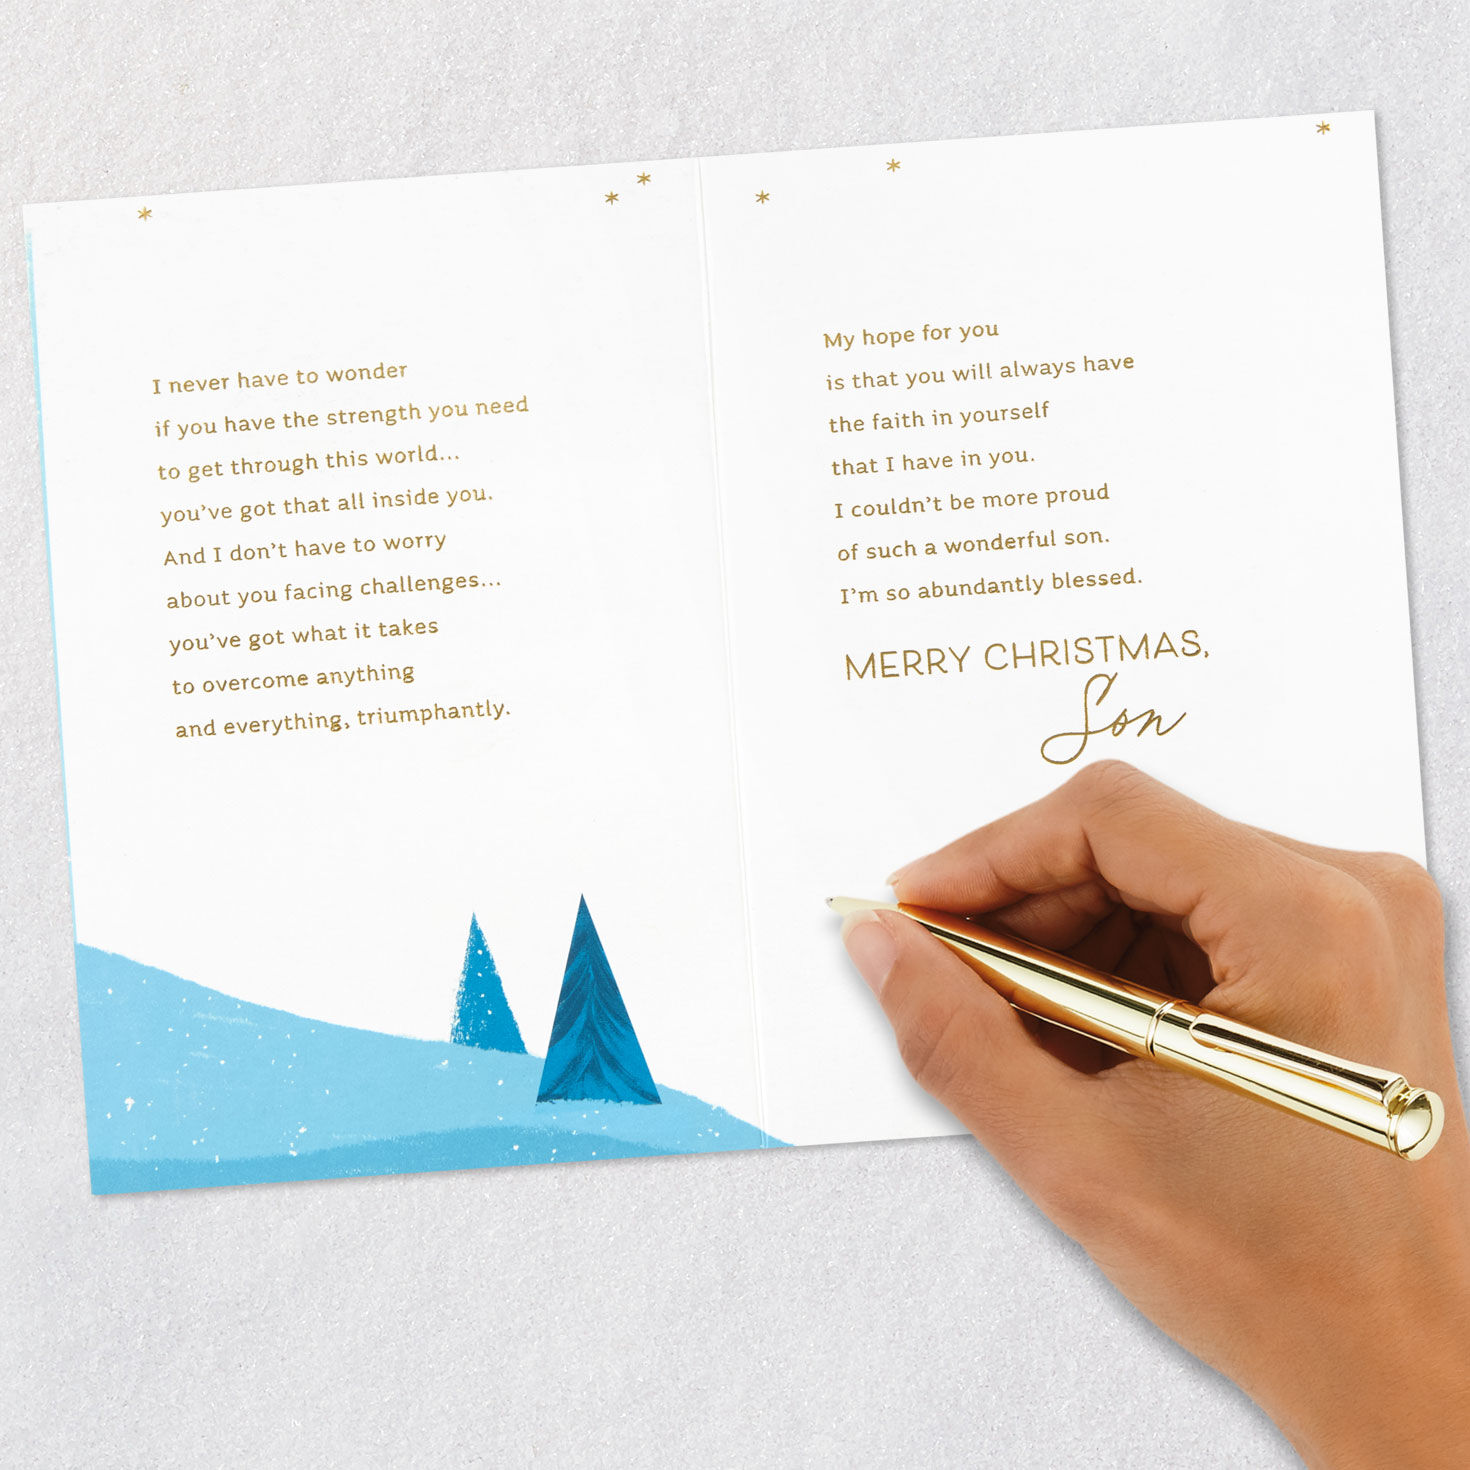 I never have to wonder
if you have the strength you need
to get through this world...
you've got that all inside you.
And I don't have to worry
about you facing challenges...
you've got what it takes
to overcome anything
and everything, triumphantly.
My hope for you
is that you will always have
the faith in yourself
that I have in you.
I couldn't be more proud
of such a wonderful son.
I'm so abundantly blessed.
MERRY CHRISTMAS,
Son